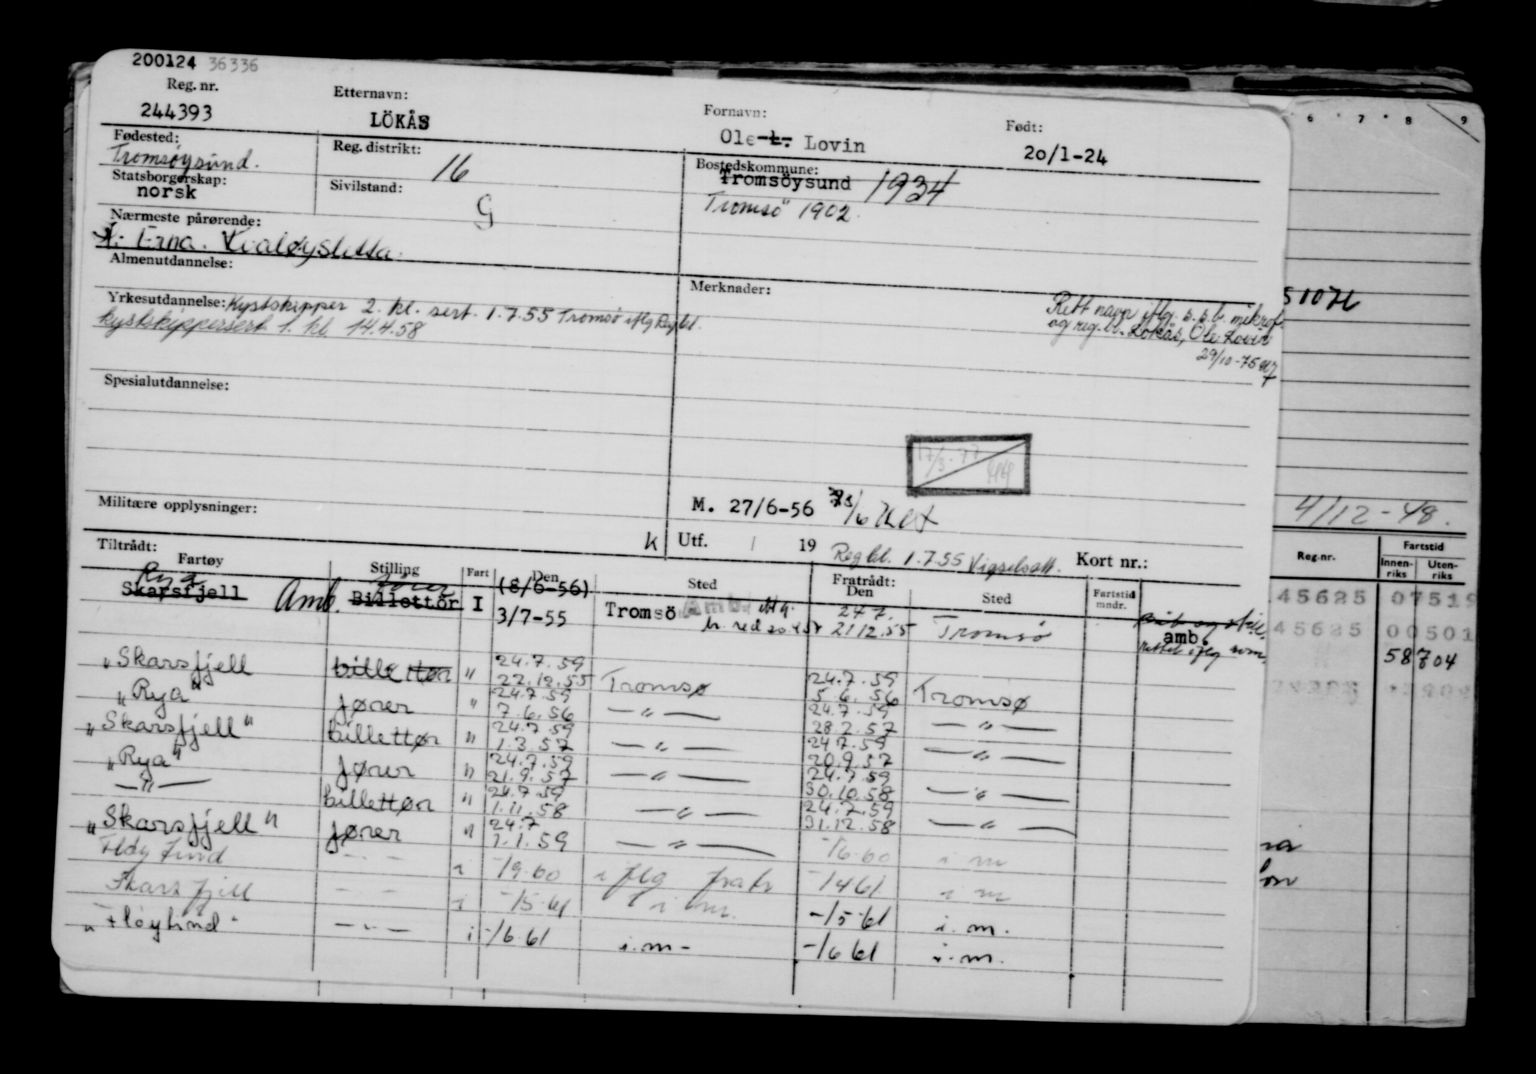 200124 36336
Reg. nr. Etternavn: Fornavn: Født:
244393 LÖKÅS Ole L. Lovin 20/1-24
Fødested: Reg. distrikt: Bostedskommune:
Tromsöysund. 16 Tromsöysund 1934
Statsborgerskap: Sivilstand:
norsk G Tromsö 1902.
Nærmeste pårørende:
Erna. Kvaløysletta.
Almenutdannelse: Merknader:
Yrkesutdannelse: Kystskipper 2. kl. sert. 1.7.55 Tromsö iflg Reg bl.
kystskippersert. 1. kl. 14.4.58
Rett navn iflg. s.s.b. mikrof.
og reg.bl. Lökås, Ole Lovin
29/10-75
Spesialutdannelse:
17/3-77
Militære opplysninger: M. 27/6-56
k Utf. / 19 Reg bl. 1.7.55 Vigselsatt. Kort nr.:
Tiltrådt: Fratrådt:
Fartøy Stilling Fart Den Sted Den Sted Fartstid mndr.
Rya fører (8/6-56)
Skarsfjell Amb. Billettör I 3/7-55 Tromsö Amb. 24.7. 21.12.55 Tromsö amb.
"Skarsfjell billettør " 24.7.59 22.12.55 Tromsø 24.7.59 5.6.56 Tromsø
"Rya" fører " 24.7.59 7.6.56 — " — 24.7.59 28.2.57 — " —
"Skarsfjell" billettør " 24.7.59 1.3.57 — " — 24.7.59 20.9.57 — " —
"Rya" fører " 24.7.59 21.9.57 — " — 24.7.59 30.10.58 — " —
— " — billettør " 24.7.59 1.11.58 — " — 24.7.59 31.12.58 — " —
"Skarsfjell" fører " 24.7 1.1.59 — " — -/6-60 i m
Fløytind - - i -/9-60 iflg fratr -/4 61 i m
Skarsfjell - - i -/5-61 i m. -/5-61 i. m.
"Fløytind" - - - i -/6 61 i. m - -/6 61 i. m.
6 7 8 9
5107L
4/12-48.
Reg.nr. Fartstid
Innenriks Utenriks
45625 07519
45625 00501
58704